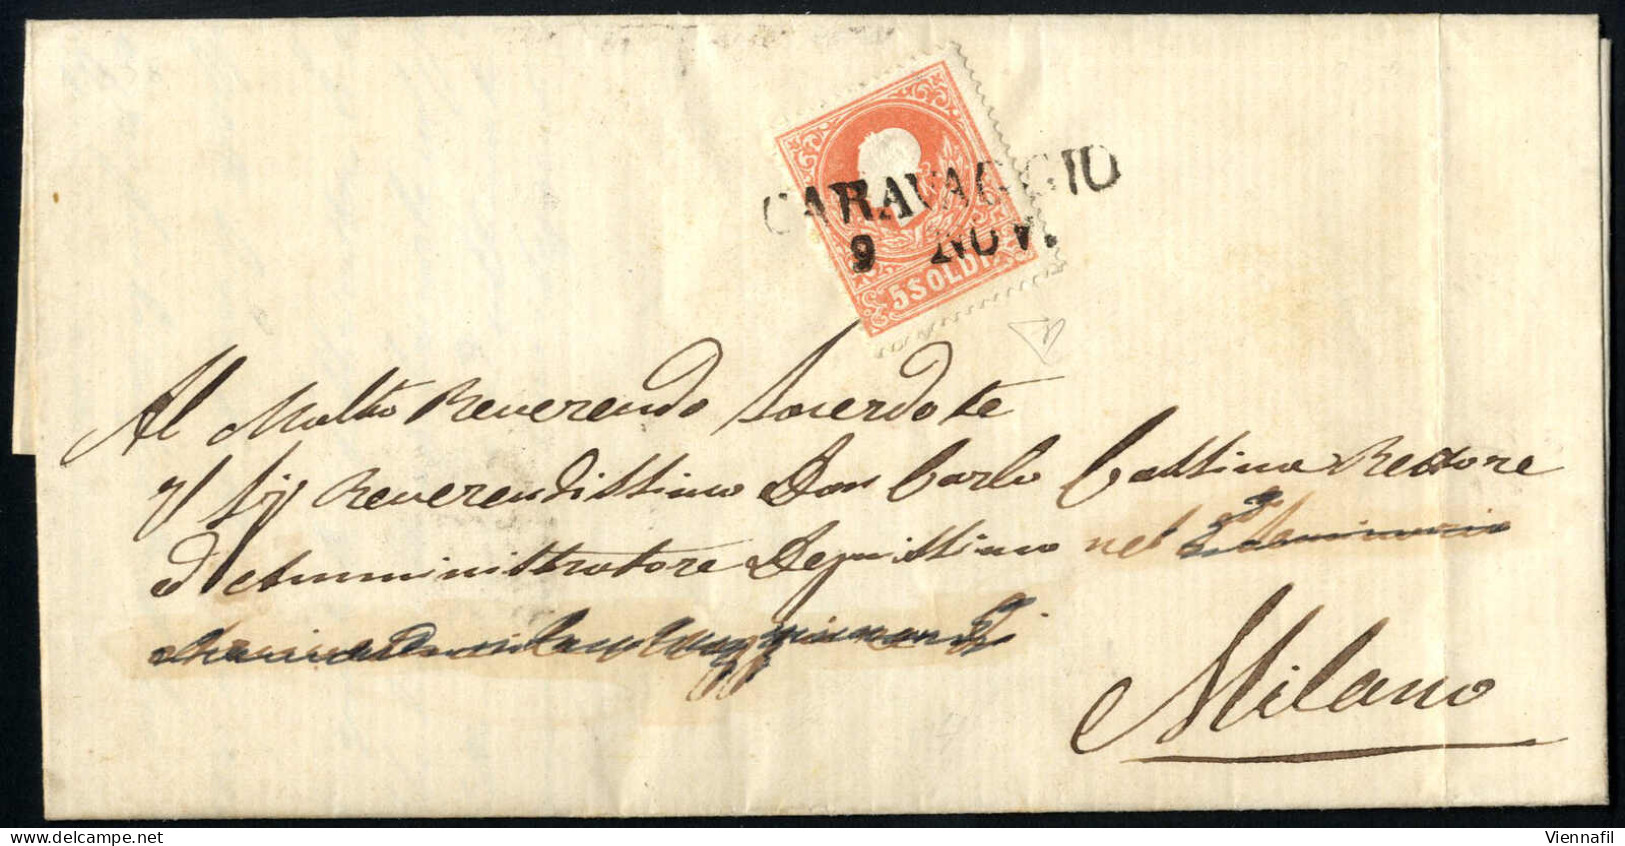 CARAVAGGIO
9 NOV.
5 SOLDI
Al Molto Reverendo Sacerdote
Il Sig Reverendissimo Don Carlo Cassina Rettore
ed Amministratore Degnissimo nel
Milano
Viennafil